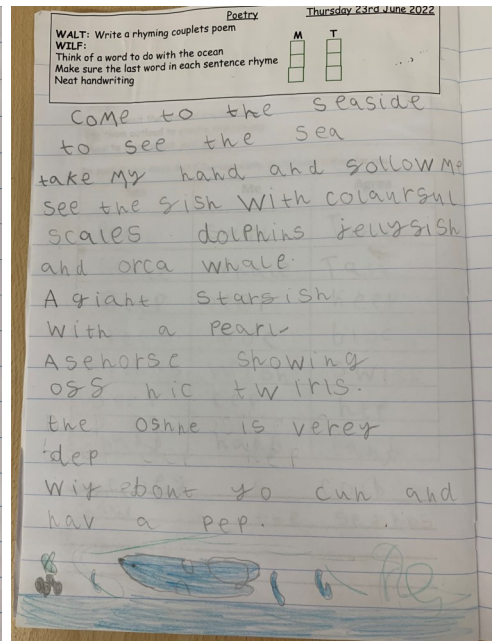 Poetry
Thursday 23rd June 2022
WALT: Write a rhyming couplets poem
M T
WILF:
Think of a word to do with the ocean
Make sure the last word in each sentence rhyme
Neat handwriting
Come to the seaside
to see the sea
take my hand and follow me
see the fish with colaurful
scales dolphins jellyfish
and orca whale.
A giant starfish
with a pearl
A sehorse showing
off hic twirls.
the oshne is verey
dep
wiy ebout yo cun and
hav a pep.